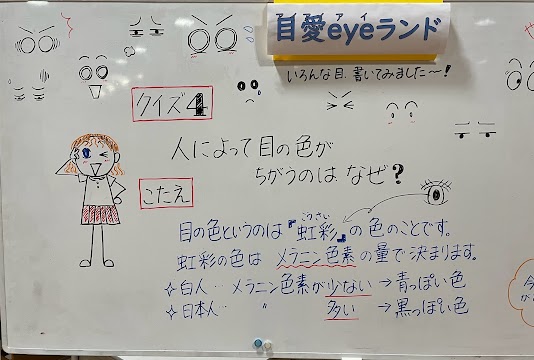 目愛eyeランド
いろんな目、書いてみました〜!
クイズ4
人によって目の色が
ちがうのはなぜ?
こたえ
こうさい
目の色というのは『虹彩』の色のことです。
虹彩の色は メラニン色素の量で決まります。
☆白人‥メラニン色素が少ない→青っぽい色
☆日本人‥ 〃 多い →黒っぽい色